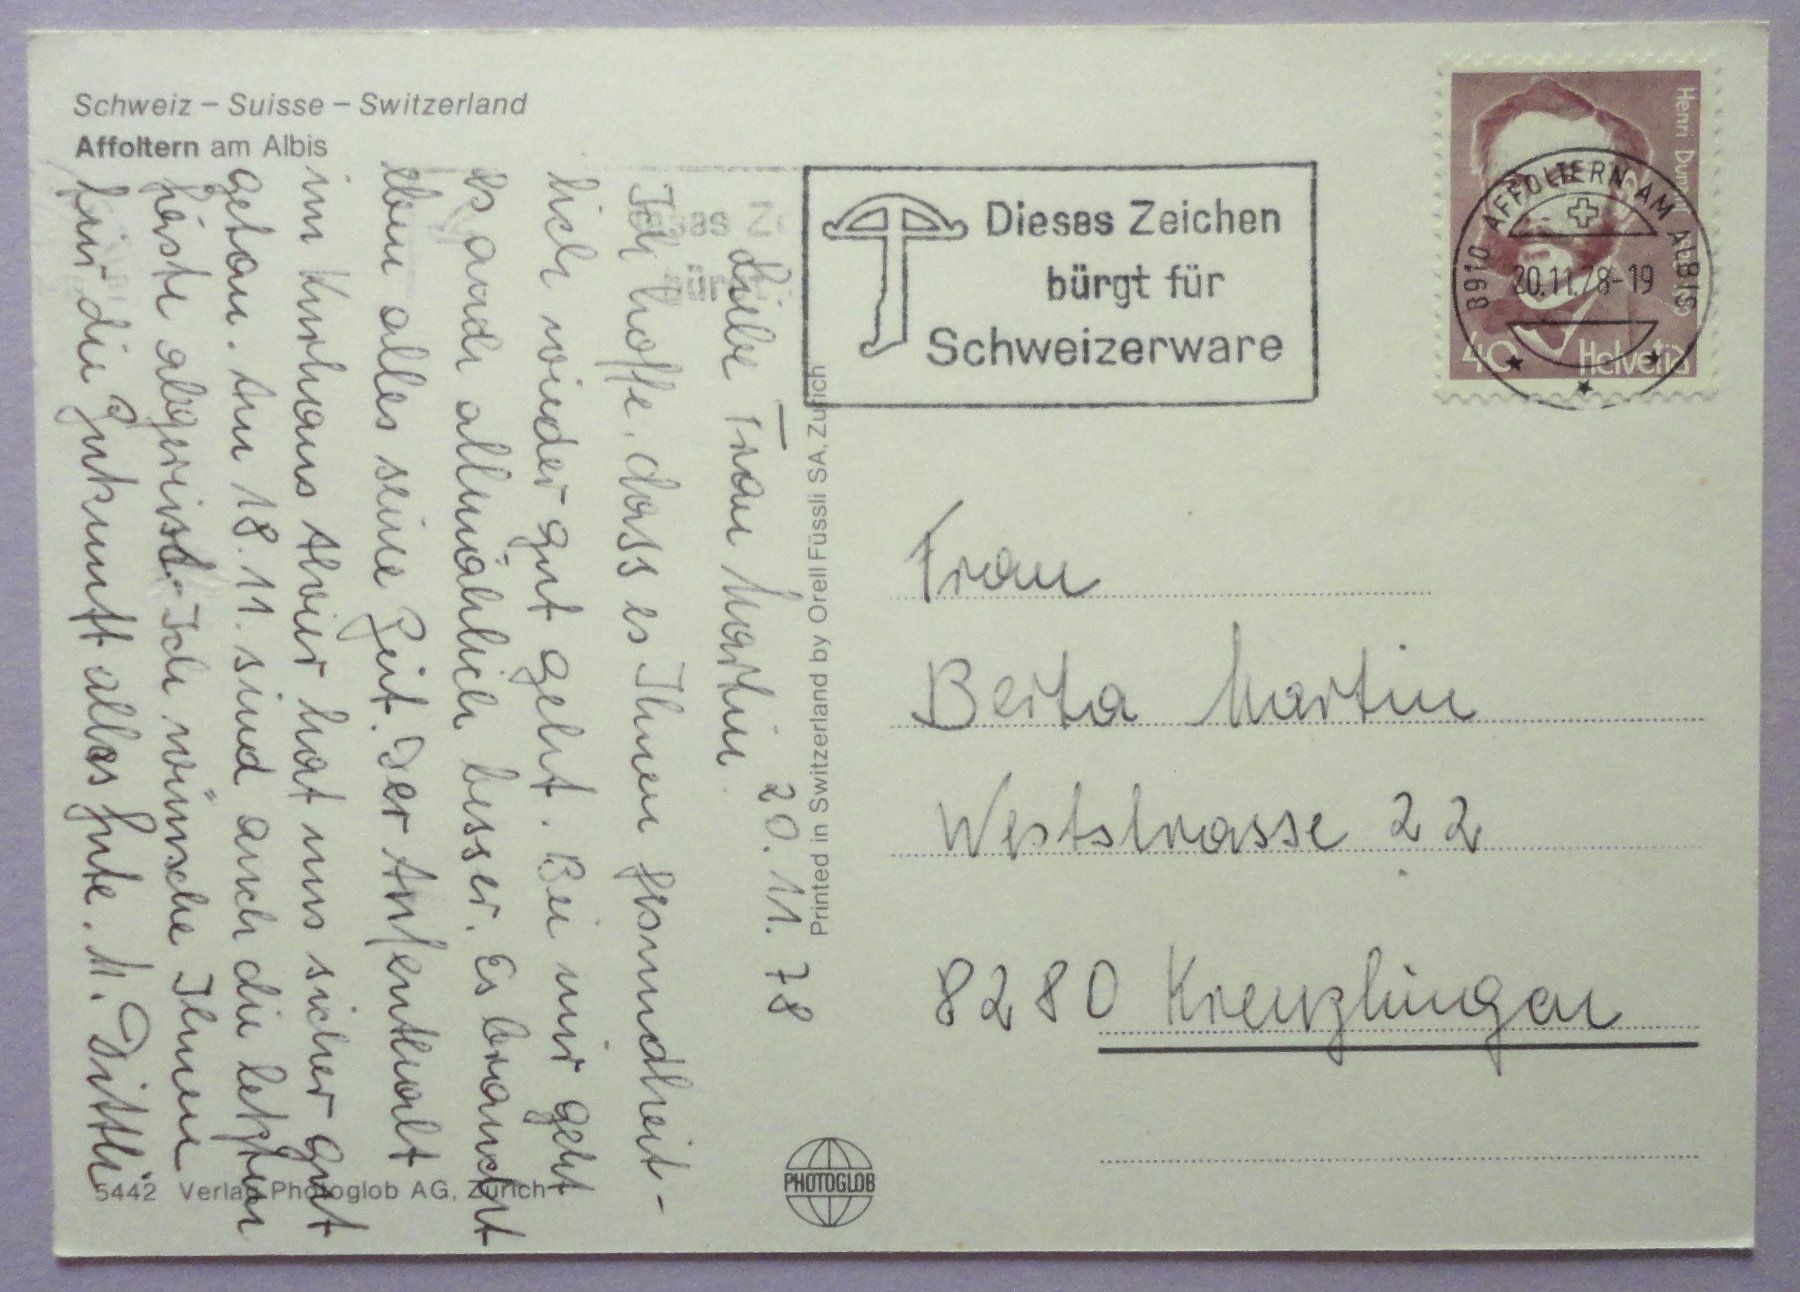 Schweiz – Suisse – Switzerland
Affoltern am Albis
Dieses Zeichen
bürgt für
Schweizerware
Henri Dunant
8910 AFFOLTERN AM ALBIS
20.11.78-19
40 Helvetia
20. 11. 78
Liebe Frau Martin
Ich hoffe, dass es Ihnen gesundheit-
lich wieder gut geht. Bei mir geht
es auch allmählich besser. Es braucht
eben alles seine Zeit. Der Aufenthalt
im Kurhaus Arvier hat uns sicher gut
getan. Am 18. 11. sind auch die letzten
Gäste abgereist. Ich wünsche Ihnen
für die Zukunft alles Gute. M. Dittli.
Printed in Switzerland by Orell Füssli SA, Zürich
Frau
Berta Martin
Weststrasse 22
8280 Kreuzlingen
5442 Verlag Photoglob AG, Zürich
PHOTOGLOB